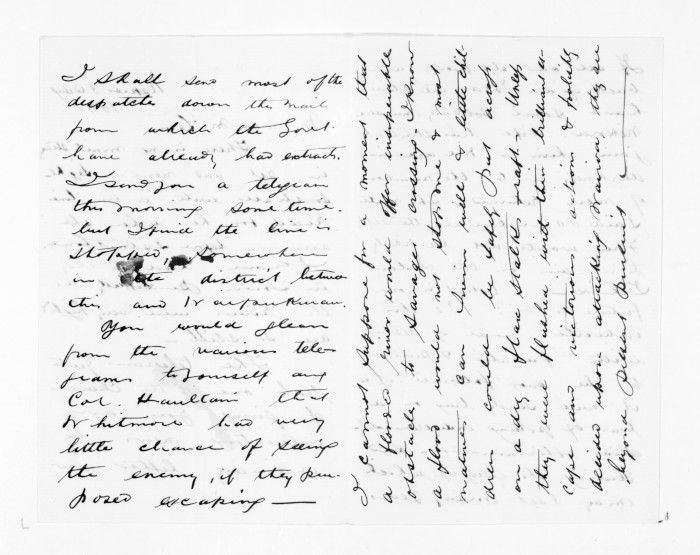 I shall send most of the
despatches down the mail
from which the Govt.
have already had extracts.
I send you a telegram
this morning some time.
but I find the line is
stopped, somewhere
in the district between
this and Waipukurau.
You would glean
from the various tele-
grams to yourself and
Col. Haultain that
Whitmore had very
little chance of seeing
the enemy, if they pur-
posed escaping —
I cannot suppose for a moment that
a flooded river would offer insuperable
obstacles to savages crossing. I know
a flood would not stop me & most
natives can swim well & little chil-
dren could be safely put across
on a dry flax stalks raft. Unless
they were flushed with their brilliant es-
cape and victorious actions & foolishly
decided upon attacking Wairoa they are
beyond present pursuit.